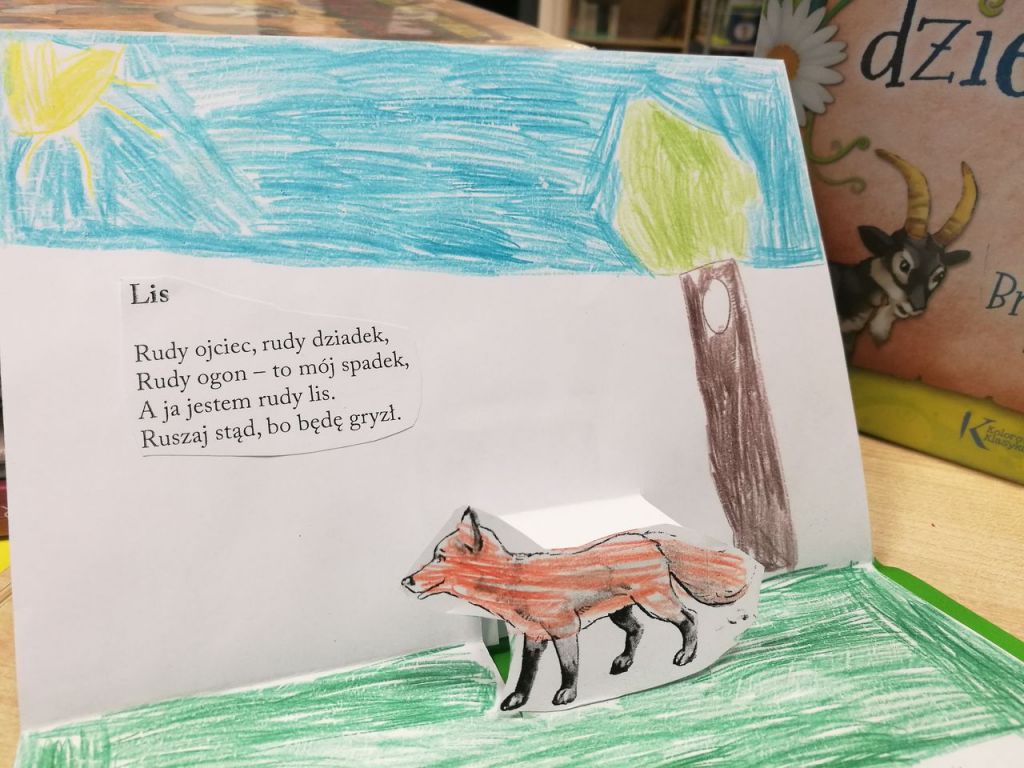 Lis
Rudy ojciec, rudy dziadek,
Rudy ogon – to mój spadek,
A ja jestem rudy lis.
Ruszaj stąd, bo będę gryzł.
dzie
Br
K
Koloro
Klasyk